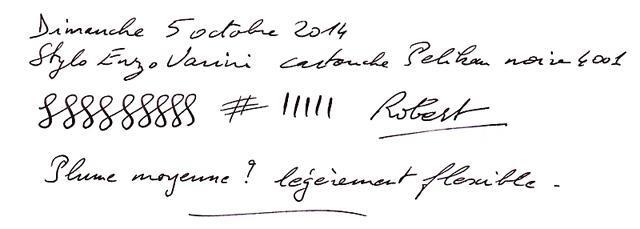 Dimanche 5 octobre 2014
Stylo Enzo Varini cartouche Pelikan noire 4001
# Robert
Plume moyenne ? légèrement flexible.